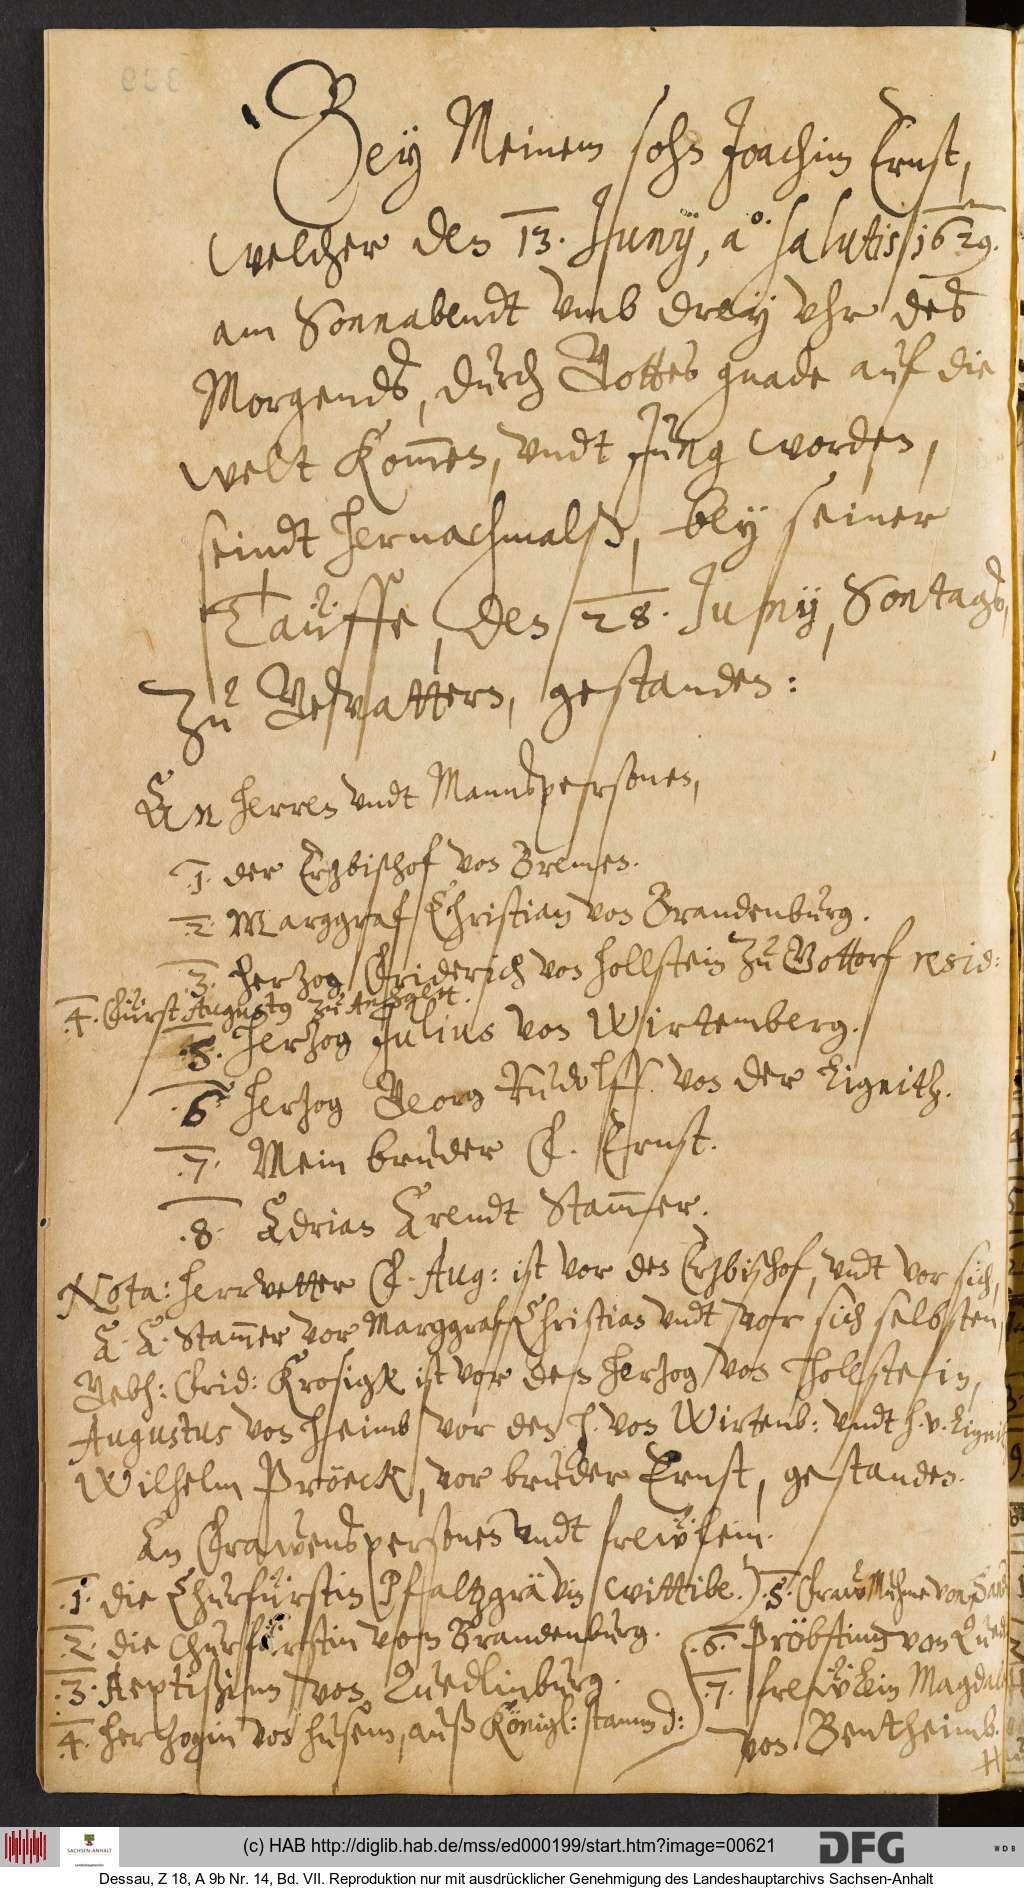 Bey Meinem sohn Joachim Ernst,
welcher den 13. Junij, ao. salutis 1629.
am Sonnabendt vmb drey vhr des
Morgends, durch Gottes gnade auf die
welt kom̅en, vndt Jung worden,
seindt hernachmalß, bey seiner
Tauffe, den 28. Junij, Sontags,
zu Gevattern, gestanden:
An herren vndt Mannspersonen,
.1. der Ertzbischof von Bremen.
.2. Marggraf Christian von Brandenburg.
.3. hertzog Friderich von hollstein zu Gottorf resid:
.4. Fürst Augustus zu Anhalt.
.5. hertzog Julius von Wirtemberg.
.6. hertzog Georg Rudolff von der Lignitz.
.7. Mein bruder F. Ernst.
.8. Adrian Arendt Stam̅er.
Nota: herrvetter F. Aug: ist vor den Ertzbischof, vndt vor sich,
A. A. Stam̅er vor Marggraf Christian vndt vor sich selbsten,
Gebh: Frid: Krosigk ist vor den hertzog von Hollstein,
Augustus von Heimb vor den h. von Wirtenb: vndt h. v. Lignitz
Wilhelm Pröeck, vor bruder Ernst, gestanden.
An Frawenspersonen vndt frewlein.
.1. die Churfürstin (Pfaltzgrävin wittibe.)
.2. die Churfürstin von Brandenburg.
.3. Aeptißinn von Quedlinburg.
.4. hertzogin von husem, auß Königl: stamm d:
.5. Fraw Muhme von
.6. Pröbstinn von
.7. frewlein
von Bentheimb.
(c) HAB http://diglib.hab.de/mss/ed000199/start.htm?image=00621
SACHSEN-ANHALT
DFG
WDB
Dessau, Z 18, A 9b Nr. 14, Bd. VII. Reproduktion nur mit ausdrücklicher Genehmigung des Landeshauptarchivs Sachsen-Anhalt